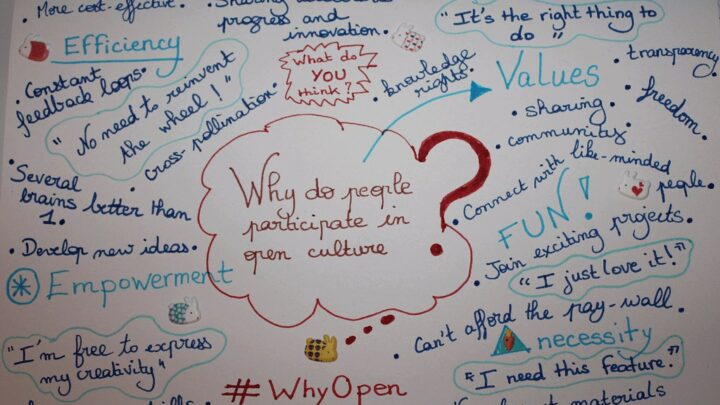 • More cost-effective.
progress and
innovation.
"It's the right thing to
do
Efficiency
• Constant
feedback loops.
"No need to reinvent
the wheel!"
• cross-pollination
What do
YOU
think?
• knowledge
rights.
Values
• transparency
• freedom.
• sharing.
• community
• Several
brains better than
1.
• Develop new ideas.
Why do people
participate in
open culture
?
• Connect with like-minded
people.
FUN!
• Join exciting projects.
"I just love it!"
Empowerment
"I'm free to express
my creativity"
• Can't afford the pay-wall.
necessity
"I need this feature."
materials
#WhyOpen